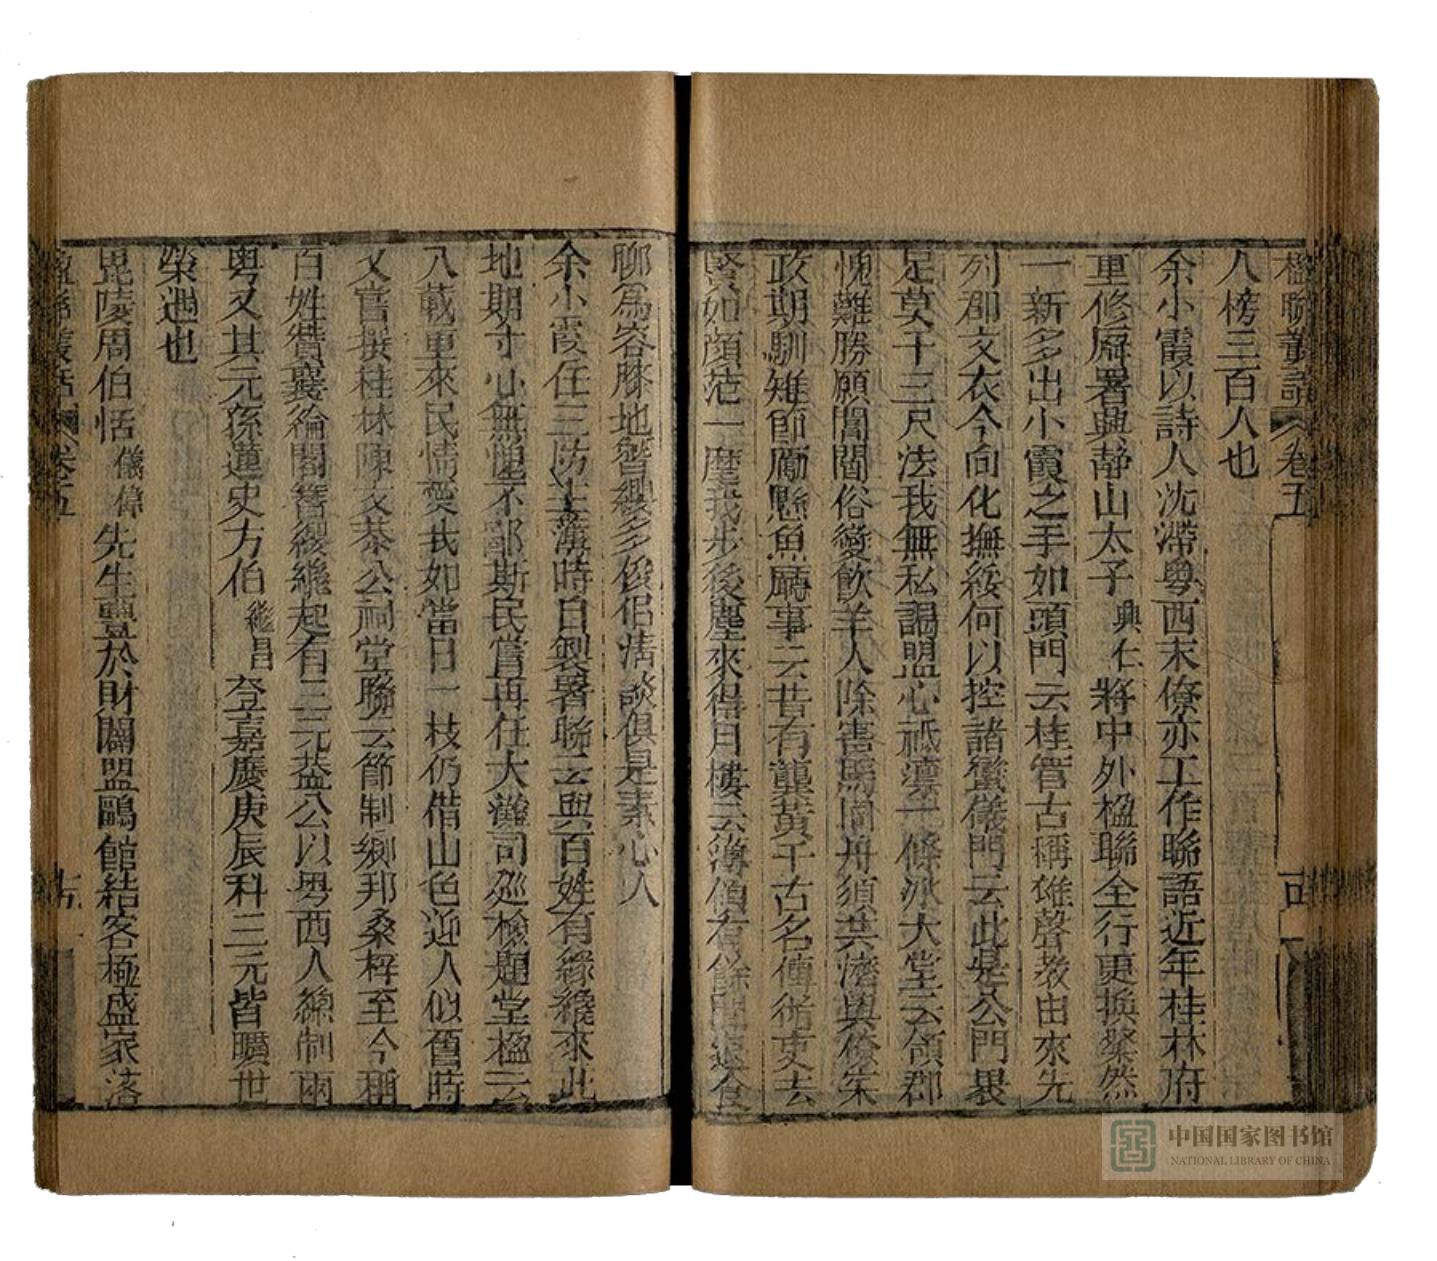 楹聯叢話 卷五
人榜三百人也
余小霞以詩人沈滯粵西末僚亦工作聯語近年桂林府
重修廨署興靜山太子興仁將中外楹聯全行更換粲然
一新多出小霞之手如頭門云桂管古稱雄聲教由來先
列郡文衣今向化撫綏何以控諸蠻儀門云此是公門裏
足莫干三尺法我無私謁盟心祗凜一條冰大堂云領郡
愧難勝願閭閻俗變飲羊人除害馬同舟須共濟與僚寀
政期馴雉節勵懸魚廳事云昔有龔黃千古名傳循吏去
賢如顏范一麾我步後塵來得月樓云薄領有餘閒退食
聊爲容膝地簪纓多俊侶清談俱是素心人
余小霞任三防主簿時自製署聯云與百姓有緣纔來此
地期寸心無愧不鄙斯民嘗再任大灘司巡檢題堂楹云
八載重來民情葵我如當日一枝仍借山色迎人似舊時
又嘗撰桂林陳文恭公祠堂聯云節制鄉邦桑梓至今稱
百姓贊襄綸閣簪纓繼起有三元葢公以粵西人總制兩
粵又其元孫蓮史方伯繼昌登嘉慶庚辰科三元皆曠世
榮遇也
毘陵周伯恬儀偉先生豐於財闢盟鷗館結客極盛家落
楹聯叢話 卷五